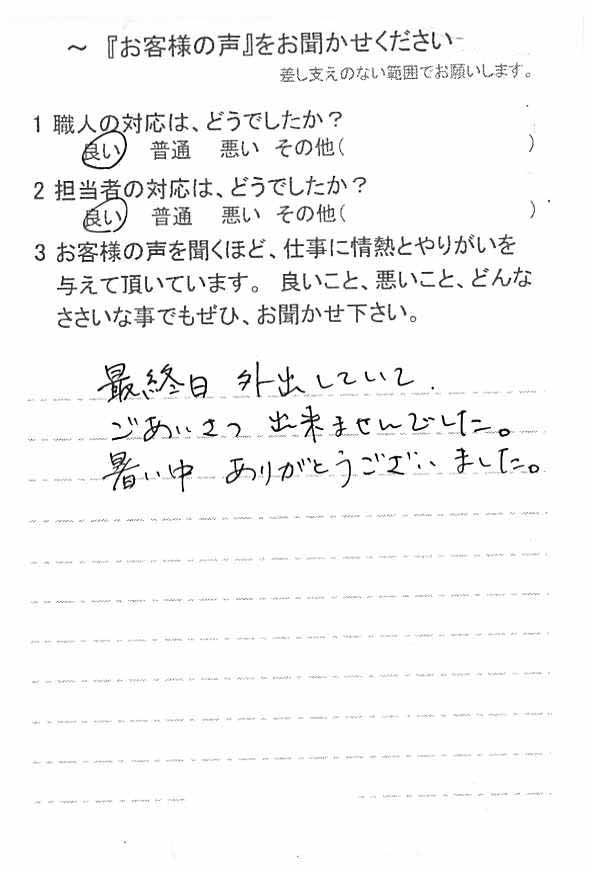 ～『お客様の声』をお聞かせください
差し支えのない範囲でお願いします。
1 職人の対応は、どうでしたか？
良い 普通 悪い その他( )
2 担当者の対応は、どうでしたか？
良い 普通 悪い その他( )
3 お客様の声を聞くほど、仕事に情熱とやりがいを
与えて頂いています。 良いこと、悪いこと、どんな
ささいな事でもぜひ、お聞かせ下さい。
最終日 外出していて
ごあいさつ 出来ませんでした。
暑い中 ありがとうございました。